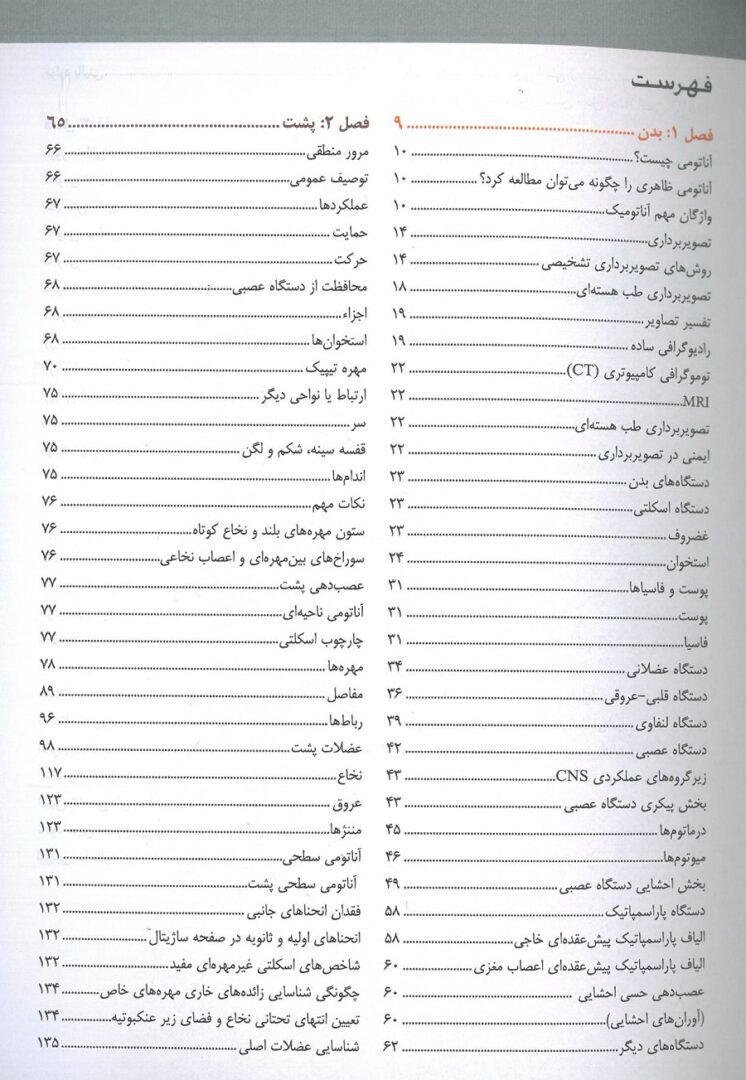 فهرست
فصل ۱: بدن ........ ۹
آناتومی چیست؟ ........ ۱۰
آناتومی ظاهری را چگونه می‌توان مطالعه کرد؟ ........ ۱۰
واژگان مهم آناتومیک ........ ۱۰
تصویربرداری ........ ۱۴
روش‌های تصویربرداری تشخیصی ........ ۱۴
تصویربرداری طب هسته‌ای ........ ۱۸
تفسیر تصاویر ........ ۱۹
رادیوگرافی ساده ........ ۱۹
توموگرافی کامپیوتری (CT) ........ ۲۲
MRI ........ ۲۲
تصویربرداری طب هسته‌ای ........ ۲۲
ایمنی در تصویربرداری ........ ۲۲
دستگاه‌های بدن ........ ۲۳
دستگاه اسکلتی ........ ۲۳
غضروف ........ ۲۳
استخوان ........ ۲۴
پوست و فاسیاها ........ ۳۱
پوست ........ ۳۱
فاسیا ........ ۳۱
دستگاه عضلانی ........ ۳۴
دستگاه قلبی-عروقی ........ ۳۶
دستگاه لنفاوی ........ ۳۹
دستگاه عصبی ........ ۴۲
زیرگروه‌های عملکردی CNS ........ ۴۳
بخش پیکری دستگاه عصبی ........ ۴۳
درماتوم‌ها ........ ۴۵
میوتوم‌ها ........ ۴۶
بخش احشایی دستگاه عصبی ........ ۴۹
دستگاه پاراسمپاتیک ........ ۵۸
الیاف پاراسمپاتیک پیش‌عقده‌ای خاجی ........ ۵۸
الیاف پاراسمپاتیک پیش‌عقده‌ای اعصاب مغزی ........ ۶۰
عصب‌دهی حسی احشایی ........ ۶۰
(آوران‌های احشایی) ........ ۶۰
دستگاه‌های دیگر ........ ۶۲
فصل ۲: پشت ........ ۶۵
مرور منطقی ........ ۶۶
توصیف عمومی ........ ۶۶
عملکردها ........ ۶۷
حمایت ........ ۶۷
حرکت ........ ۶۷
محافظت از دستگاه عصبی ........ ۶۸
اجزاء ........ ۶۸
استخوان‌ها ........ ۶۸
مهره تیپیک ........ ۷۰
ارتباط یا نواحی دیگر ........ ۷۵
سر ........ ۷۵
قفسه سینه، شکم و لگن ........ ۷۵
اندام‌ها ........ ۷۵
نکات مهم ........ ۷۶
ستون مهره‌های بلند و نخاع کوتاه ........ ۷۶
سوراخ‌های بین‌مهره‌ای و اعصاب نخاعی ........ ۷۶
عصب‌دهی پشت ........ ۷۷
آناتومی ناحیه‌ای ........ ۷۷
چارچوب اسکلتی ........ ۷۷
مهره‌ها ........ ۷۸
مفاصل ........ ۸۹
رباط‌ها ........ ۹۶
عضلات پشت ........ ۹۸
نخاع ........ ۱۱۷
عروق ........ ۱۲۳
مننژها ........ ۱۲۳
آناتومی سطحی ........ ۱۳۱
آناتومی سطحی پشت ........ ۱۳۱
فقدان انحناهای جانبی ........ ۱۳۲
انحناهای اولیه و ثانویه در صفحه ساژیتال ........ ۱۳۲
شاخص‌های اسکلتی غیرمهره‌ای مفید ........ ۱۳۲
چگونگی شناسایی زائده‌های خاری مهره‌های خاص ........ ۱۳۴
تعیین انتهای تحتانی نخاع و فضای زیر عنکبوتیه ........ ۱۳۴
شناسایی عضلات اصلی ........ ۱۳۵